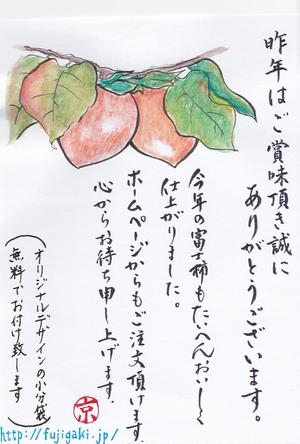 昨年はご賞味頂き誠に
ありがとうございます。
今年の富士柿もたいへんおいしく
仕上がりました。
ホームページからもご注文頂けます
心からお待ち申し上げます.
(オリジナルデザインの小分袋
無料でお付け致します)
京
http://fujigaki.jp/